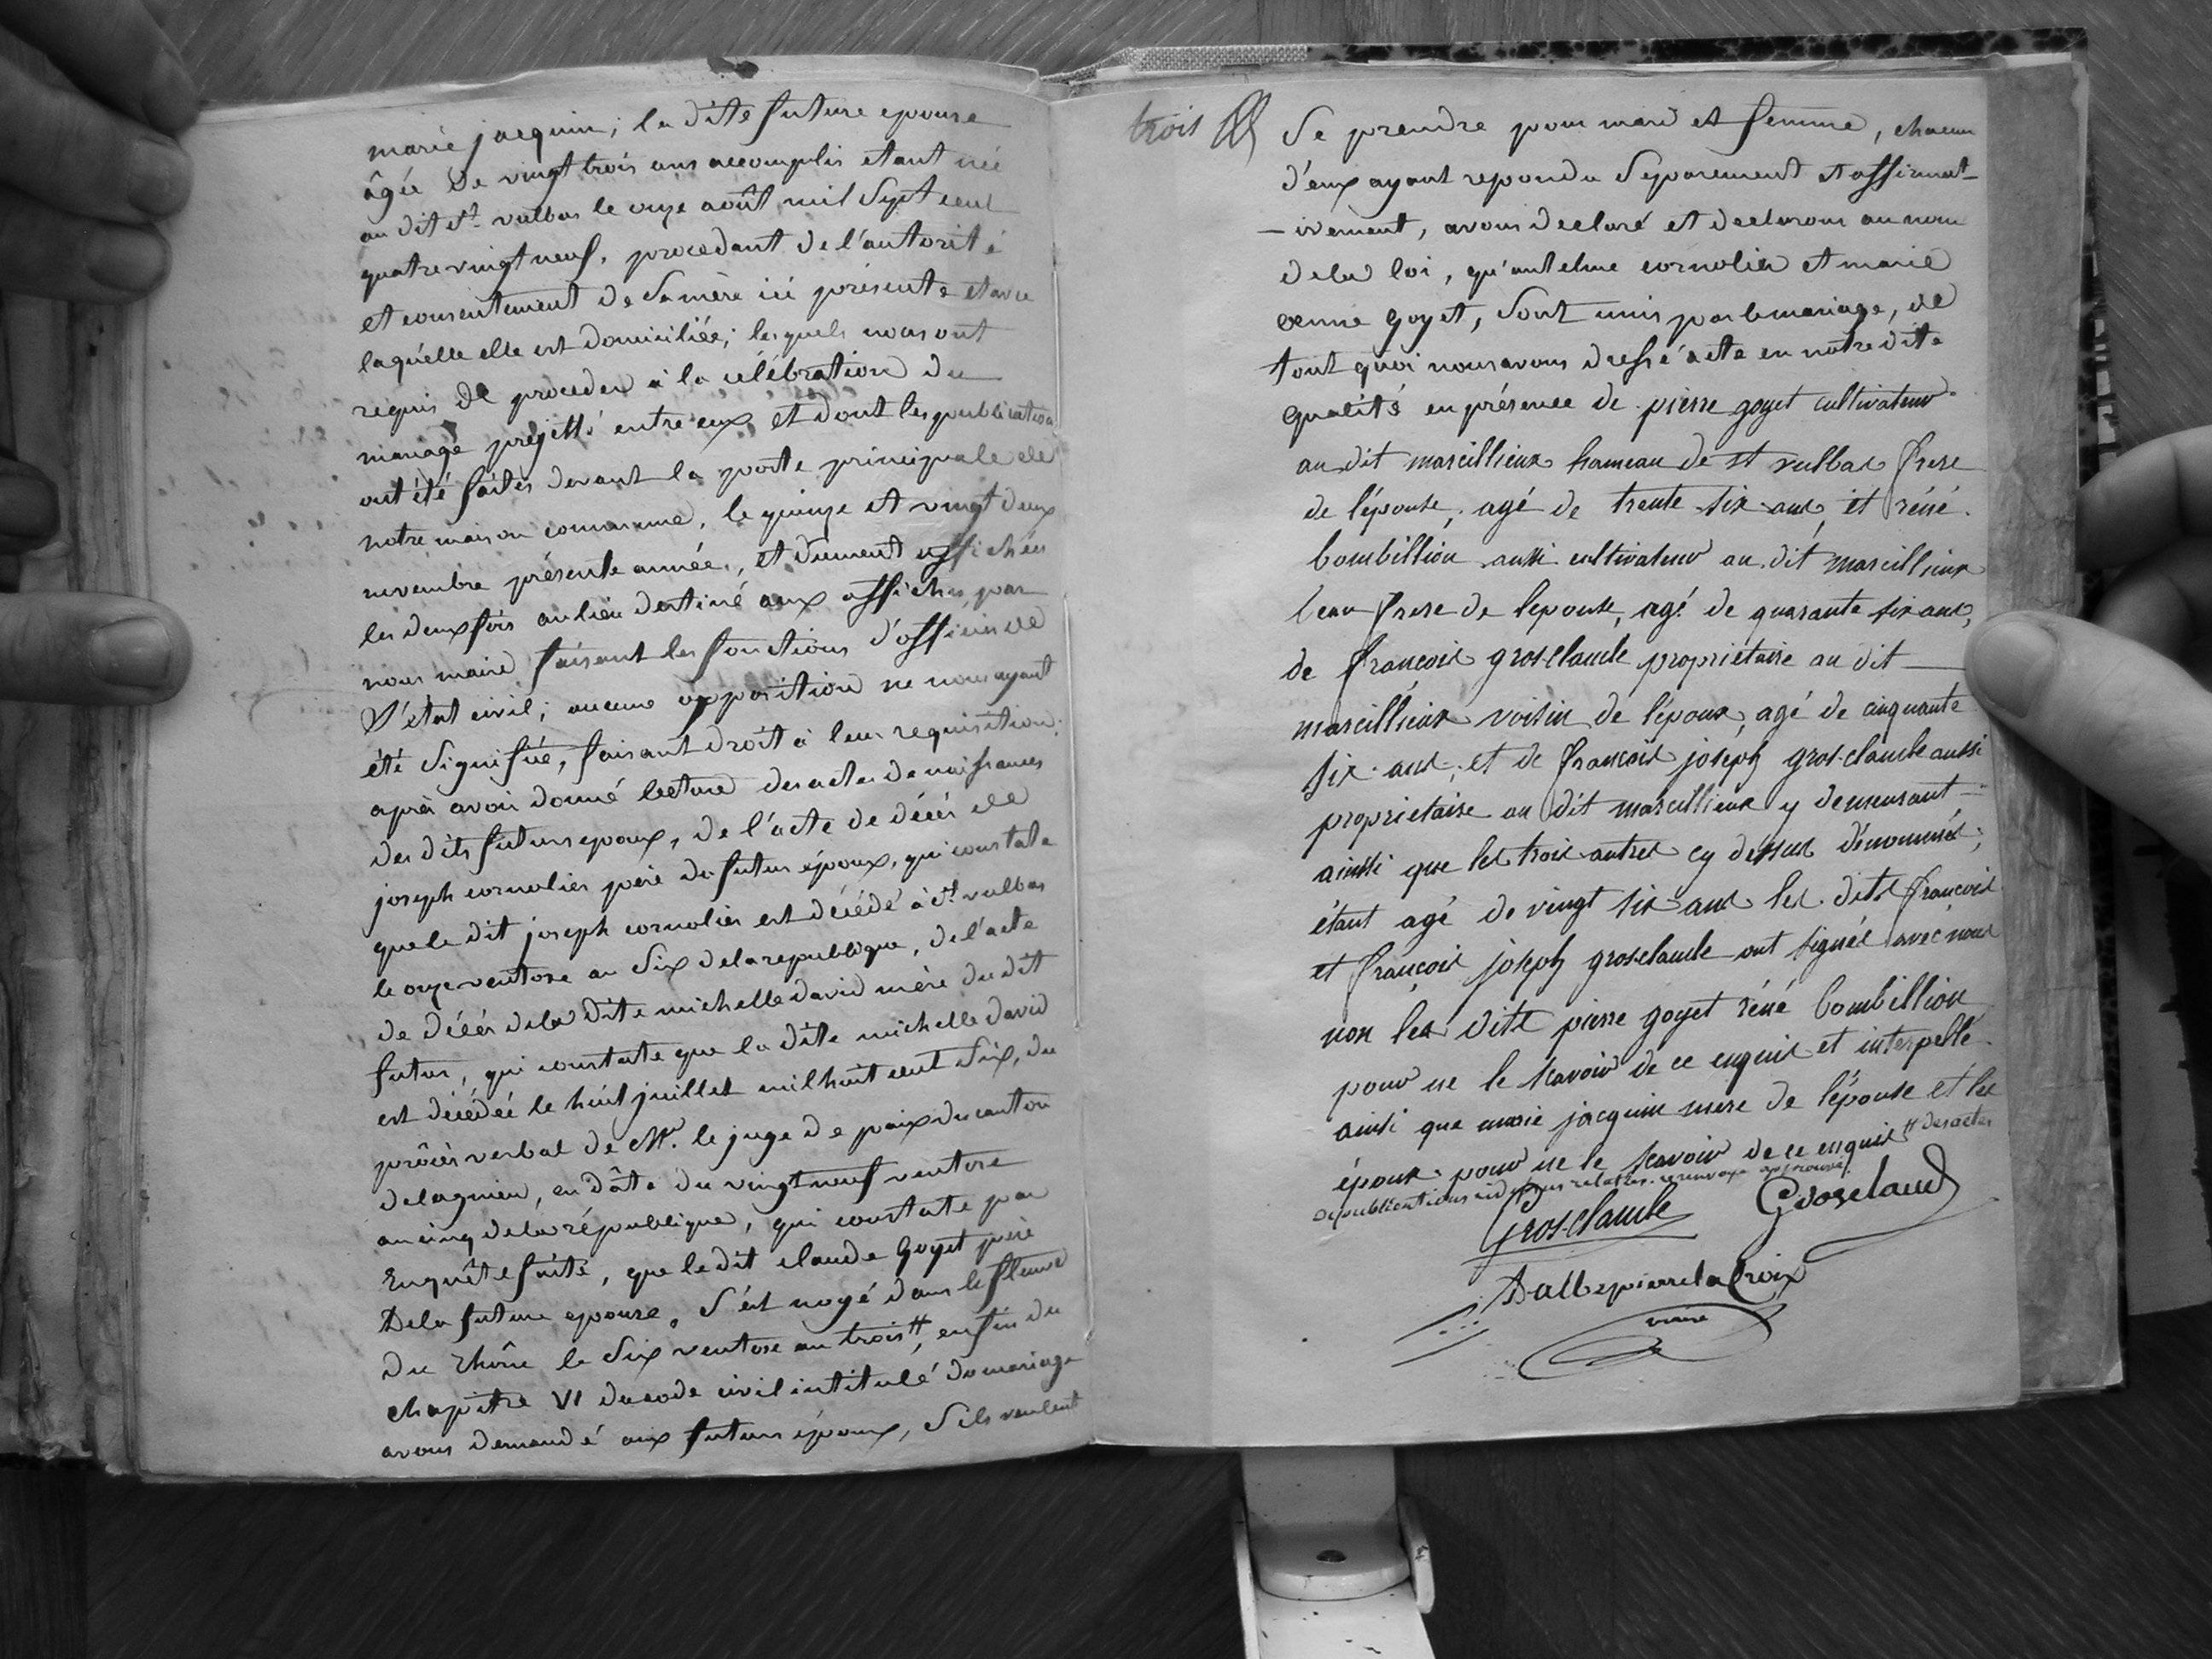 marie jacquin; la dite future epouse
âgée de vingt trois ans accomplis etant née
au dit st. vulbas le onze août mil Sept cent
quatre vingt neuf, procedant de l'autorité
et consentement de Sa mère ici présente et avec
laquélle elle est domiciliée; lesquels nous ont
requis de proceder à la célébration du
mariage projetté entre eux et dont les publications
ont été faites devant la porte principale de
notre maison commune, le quinze et vingt deux
novembre présente année, et dument affichées
les deux fois au lieu destiné aux affiches, par
nous maire faisant les fonctions d'officier de
l'état civil; aucune opposition ne nous ayant
été Signifiée, faisant droit à leur requisition;
après avoir donné lecture des actes de naissances
des dits futurs epoux, de l'acte de décès de
joseph cornolier père du futur époux, qui constate
que le dit joseph cornolier est décédé à st. vulbas
le onze ventose an Six de la republique, de l'acte
de décès de la dite michelle david mère du dit
futur, qui constate que la dite michelle david
est décédée le huit juillet mil huit cent Six, du
procès verbal de Mr. le juge de paix du canton
de lagnieu, en dâte du vingt neuf ventose
an cinq de la république, qui constate par
Enquête faite, que le dit claude Goyet père
De la future epouse, S'est noyé dans le fleuve
du rhône le Six ventose an trois #, enfin du
chapitre VI du code civil intitulé du mariage
avons demandé aux futurs époux, S'ils veulent
trois
Se prendre pour mari et femme, chacun
d'eux ayant repondu Separement et affirmat-
-ivement, avons declaré et declarons au nom
de la loi, qu'antelme cornolier et marie
anne Goyet, Sont unis par le mariage, de
tout quoi nous avons dressé acte en notre dite
qualité en présence de pierre goyet cultivateur
au dit marcillieux hameau de st vulbas frere
de l'épouse, agé de trente six ans, et réné
bombillion aussi cultivateur au dit marcillieux
beau frere de lepouse, agé de quarante six ans,
de françois gros-claude propriétaire au dit
marcillieux voisin de l'époux, agé de cinquante
six ans, et de françois joseph gros-claude aussi
propriétaire au dit marcillieux y demeurant
ainsi que les trois autres cy dessus dénommés;
étant agé de vingt six ans les dits françois
et françois joseph gros-claude ont signés avec nous
non les dits pierre goyet réné bombillion
pour ne le scavoir de ce enquis et interpellé
ainsi que marie jacquin mere de l'épouse et les
époux pour ne le scavoir de ce enquis # des actes
de publications ci dessus relatés. renvoye approuvé.
Gros-claude Grosclaude
Dallepierre la Croix
maire